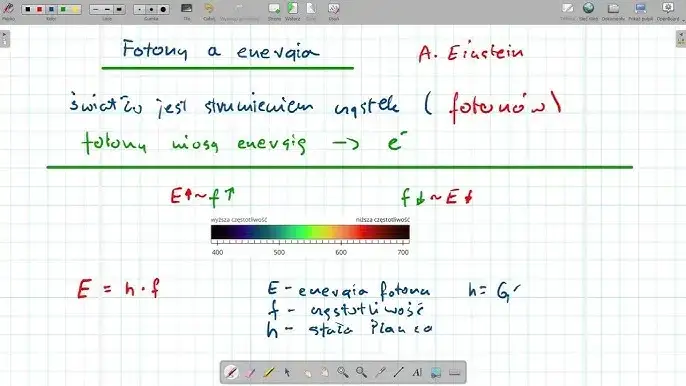 Fotony a energia
A. Einstein
światło jest strumieniem cząstek (fotonów)
fotony niosą energię → e⁻
E↑~f↑
f↓~E↓
wyższa częstotliwość
niższa częstotliwość
400 500 600 700
E = h·f
E - energia fotonu
f - częstotliwość
h - stała Planca
h = 6,